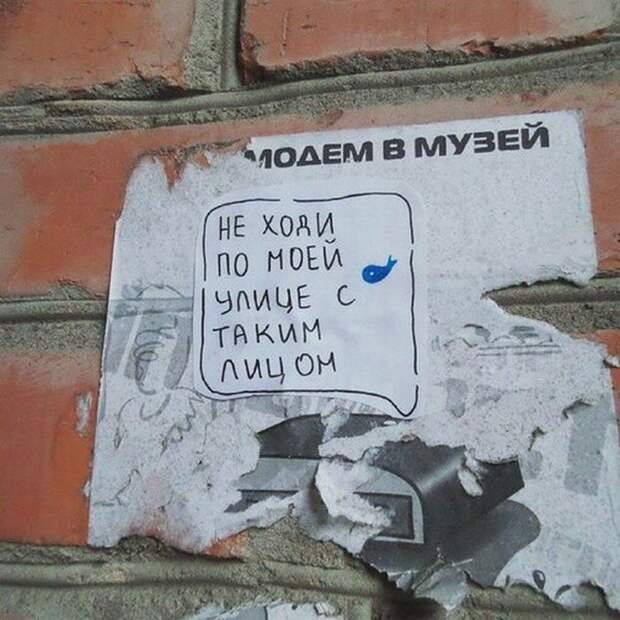 МОДЕМ В МУЗЕЙ
НЕ ХОДИ
ПО МОЕЙ
УЛИЦЕ С
ТАКИМ
ЛИЦОМ